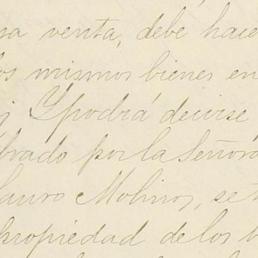 sa venta, debe hace
os mismos bienes en
Y podrá decirse
brado por la Señora
auro Molinos, se
propiedad de los b